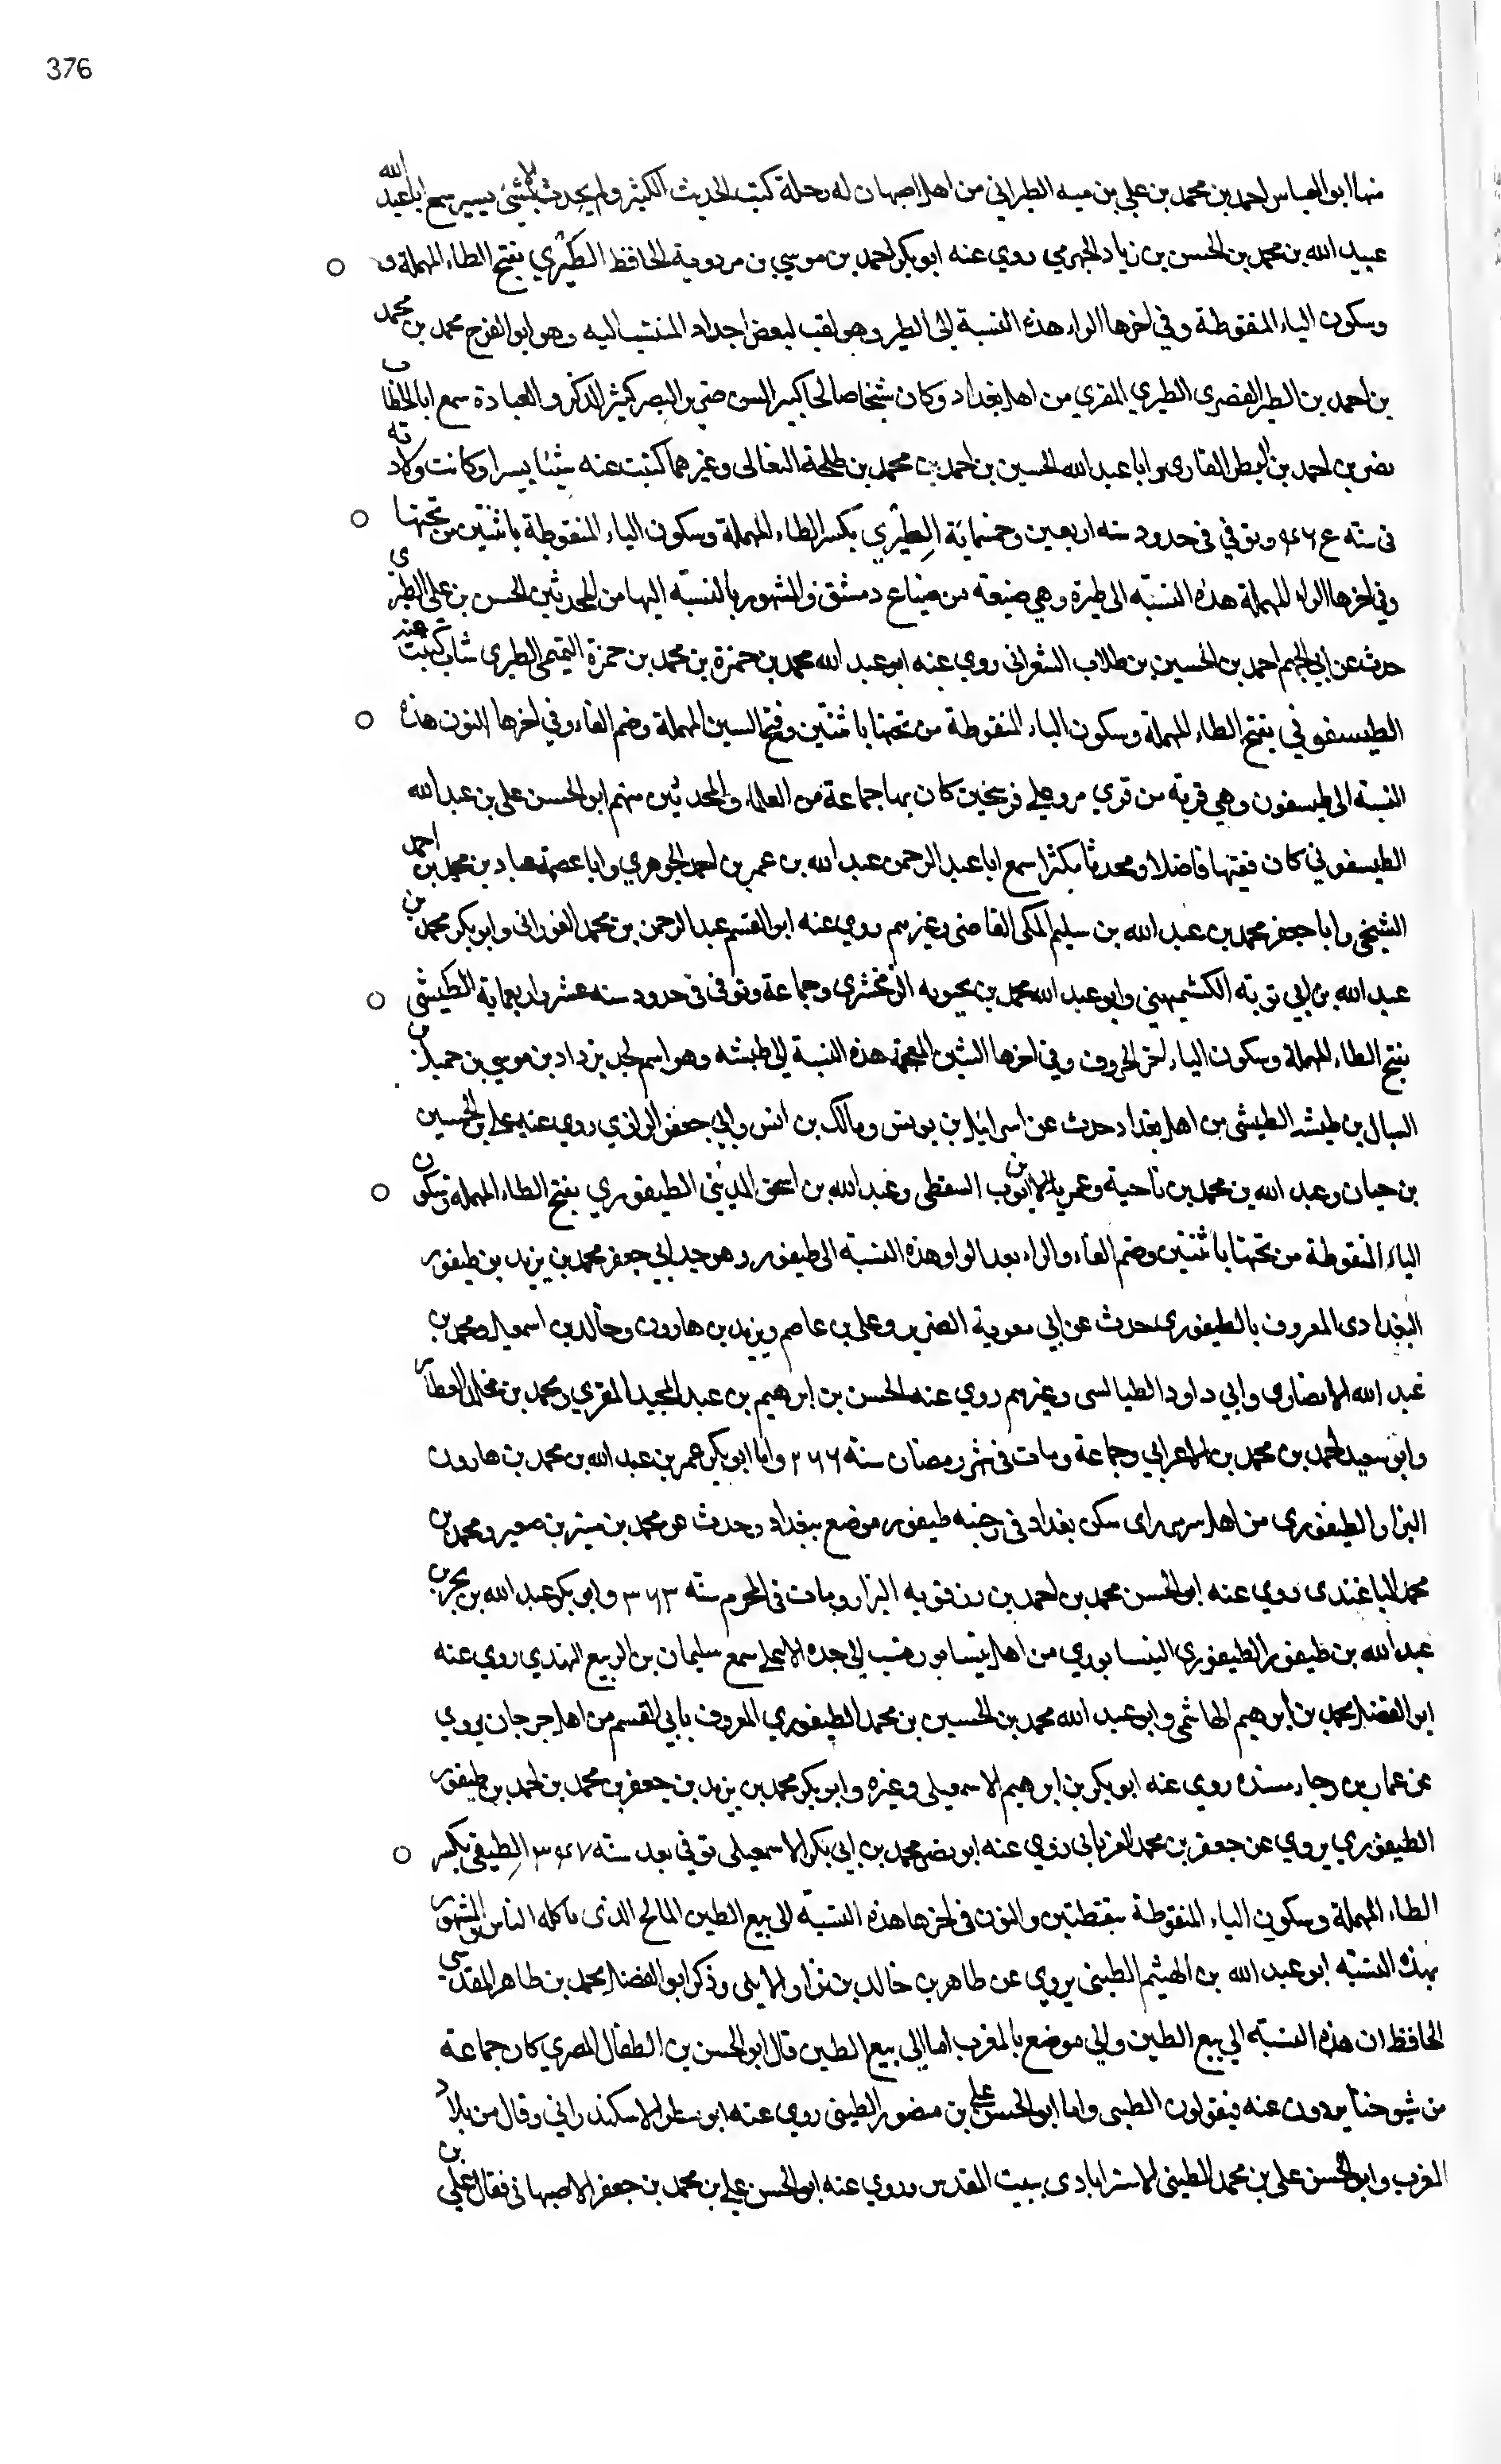 376
منها ابو العباس احمد بن محمد بن علي بن ميسه الطيراني من اهل اصبهان له رحلة كتب الحديث الكثير ولم يحدث الا بشئ يسير سمع ابا عبد الله
عبيد الله بن محمد بن الحسن بن زياد الجهرمي روي عنه ابو بكر احمد بن موسي بن مردوية الحافظ الطَيْري بفتح الطاء المهملة و
وسكون الياء المنقوطة وفي اخرها الراء هذه النسبة الى الطير وهو لقب لبعض اجداد المنتسب اليه وهو ابو الفرج محمد بن محمد
بن احمد بن الطير القصرى الطيري المقري من اهل بغداد وكان شيخا صالحا كبير السن ضرير البصر كثير الذكر والعبادة سمع ابا الخطاب
نصر بن احمد بن البطر القارى وابا عبد الله الحسين بن احمد بن محمد بن طلحة النعالى وغيرهما كتبت عنه شيئا يسيرا وكانت ولادته
فى سنه وتوفي فى حدود سنه اربعين وخمسمائة الطِيْري بكسر الطاء المهملة وسكون الياء المنقوطة باثنتين من تحتها
وفي اخرها الراء المهملة هذه النسبة الى طيرة وهي ضيعة من ضياع دمشق والمشهور بالنسبة اليها من المحدثين الحسن بن علي الطيرى
حدث عن ابي الجهم احمد بن الحسين بن طلاب الشعرانى روي عنه ابو عبد الله محمد بن حمزة بن محمد بن حمزة التميمي الطيرى شاب كتبت عنه
الطيسفوني بفتح الطاء المهملة وسكون الياء المنقوطة من تحتها باثنتين وفتح السين المهملة وضم الفاء وفي اخرها النون هذه
النسبة الى طيسفون وهي قرية من قري مرو علي فرسخين كان بها جماعة من العلماء والمحدثين منهم ابو الحسن على بن عبد الله
الطيسفوني كان فقيها فاضلا ومحدثا مكثرا سمع ابا عبد الرحمن عبد الله بن عمر بن احمد الجوهري وابا عصمة عباد بن محمد بن احمد
الشيخي وابا جعفر محمد بن عبد الله بن سليم المكى القاضى وغيرهم روي عنه ابو القسم عبد الرحمن بن محمد الفورانى وابو بكر محمد بن
عبد الله بن ابي توبة الكشميهني وابو عبد الله محمد بن الزمخشري وجماعة وتوفى فى حدود سنه عشر واربعماية الطَيشي
بفتح الطاء المهملة وسكون الياء اخر الحروف وفي اخرها الشين المعجمة هذه النسبة الي طيشه وهو اسم لجد يزداد بن موسي بن جميل بن
السبال بن طيشه الطيشي من اهل بغداد حدث عن اسرائيل بن يونس ومالك بن انس وابي جعفر الرازي روي عنه علي بن الحسين
بن حيان وعبد الله بن محمد بن ناحية وعمر بن ايوب السقطى وعبد الله بن اسحق المديني الطيفوري بفتح الطاء المهملة وسكون
الياء المنقوطة من تحتها باثنتين وضم الفاء والراء بعد الواو هذه النسبة الى طيفور وهو جد ابي جعفر محمد بن يزيد بن طيفور
البغدادى المعروف بالطيفورى حدث عن ابي معوية الضرير وعلي بن عاصم ويزيد بن هارون وخالد بن اسمعيل ومحمد بن
عبد الله الانصارى وابي داود الطيالسى وغيرهم روي عنه الحسن بن ابرهيم بن عبد المجيد المقري ومحمد بن مخلد العطار
وابو سعيد احمد بن محمد بن الاعرابي وجماعة ومات فى شهر رمضان سنة ٢٦٦ واما ابو بكر عمر بن عبد الله بن محمد بن هارون
البزاز الطيفوري من اهل سر من راى سكن بغداد فى طيفور موضع ببغداد وحدث عن محمد بن ومحمد بن
محمد الباغندى روي عنه ابو الحسن محمد بن احمد بن رزقويه البزاز ومات فى المحرم سنه ٣٦٣ وابو بكر عبد الله بن يحي بن
عبد الله بن طيفور الطيفوري النيسابوري من اهل نيسابور نسب الي جده الاعلي سمع سليمان بن الربيع النهدي روي عنه
ابو الفضل محمد بن ابرهيم الهاشمي وابو عبد الله محمد بن الحسين بن محمد الطيفوري المعروف بابي القسم من اهل جرجان يروي
عن عمار بن رجاء مسنده روي عنه ابو بكر بن ابرهيم الاسمعيلى وغيره وابو بكر محمد بن يزيد بن جعفر بن محمد بن احمد بن طيفور
الطيفوري يروي عن جعفر بن محمد الفريابى روي عنه ابو نصر محمد بن ابى بكر الاسمعيلى توفي بعد سنه الطِيني بكسر
الطاء المهملة وسكون الياء المنقوطة بنقطتين والنون فى اخرها هذه النسبة الى بيع الطين المالح الذى ياكله الناس المشهور
بهذه النسبة ابو عبد الله بن الهيثم الطينى يروي عن طاهر بن خالد بن نزار الايلى وذكر ابو الفضل محمد بن طاهر المقدسي
الحافظ ان هذه النسبة الي بيع الطين والي موضع بالمغرب اما الي بيع الطين قال ابو الحسن بن الطفال المصري كان جماعة
من شيوخنا يروون عنه فيقولون الطينى واما ابو الحسن علي بن منصور الطينى روي عنه الاسكندرانى وقال من بلاد
المغرب وابو الحسن على بن محمد الطينى الاستراباذى ببيت المقدس وروي عنه ابو الحسن علي بن محمد بن جعفر الاصبهانى فقال علي بن